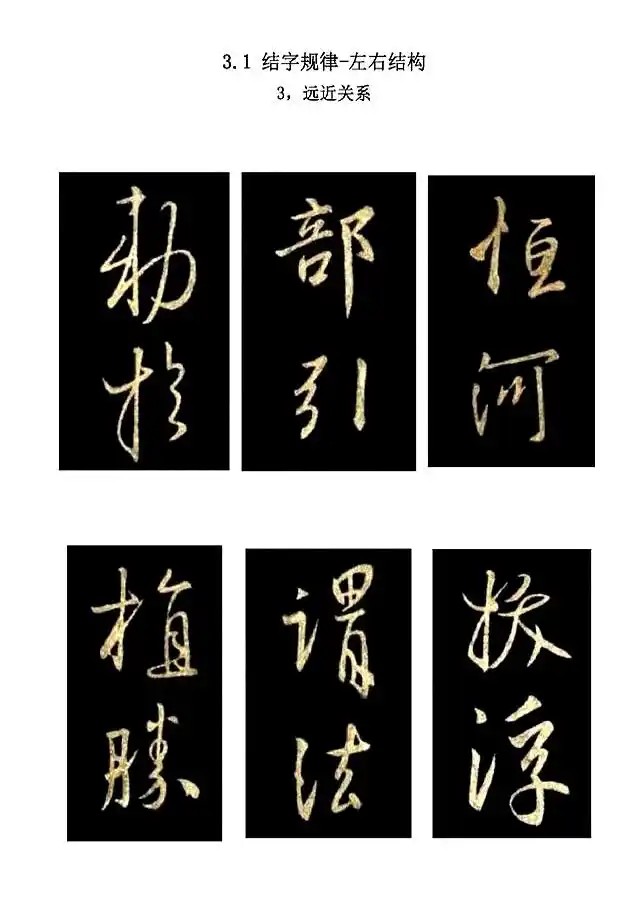 3.1 结字规律-左右结构
3，远近关系
勅於
部引
恒河
植勝
謂法
拔浮